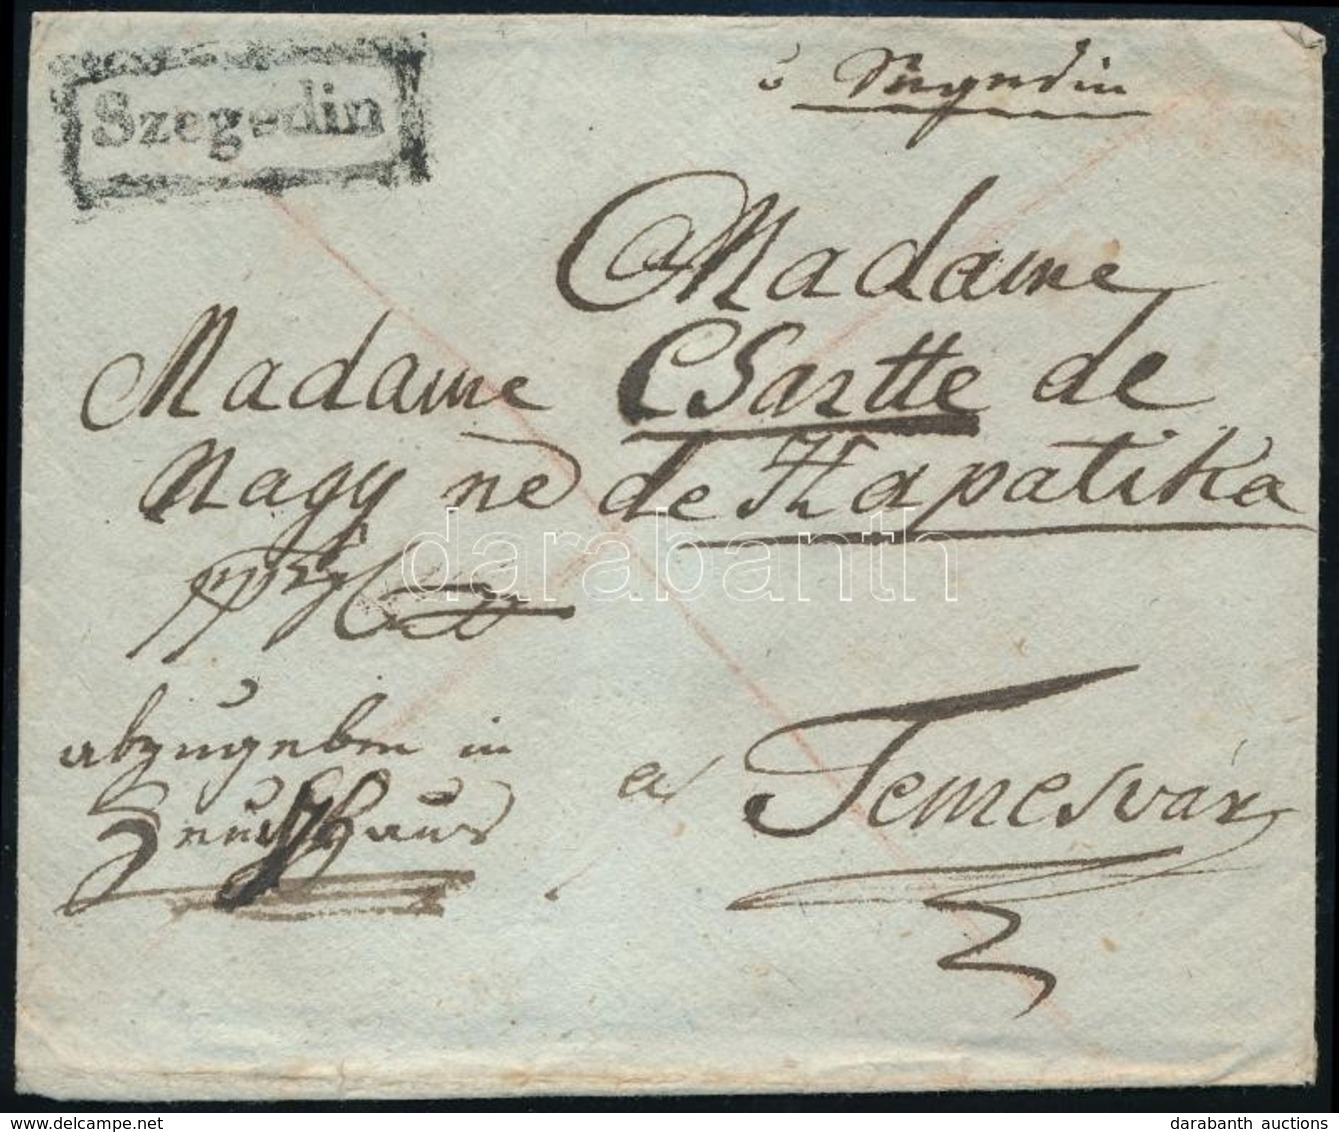 Szegedin
Szegedin
Madame
Madame CSartte de
Nagy nè de Kapatika
abzugeben in
Zeughaus
a Temesvár
darabanth
www.delcampe.net
darabanth auctions